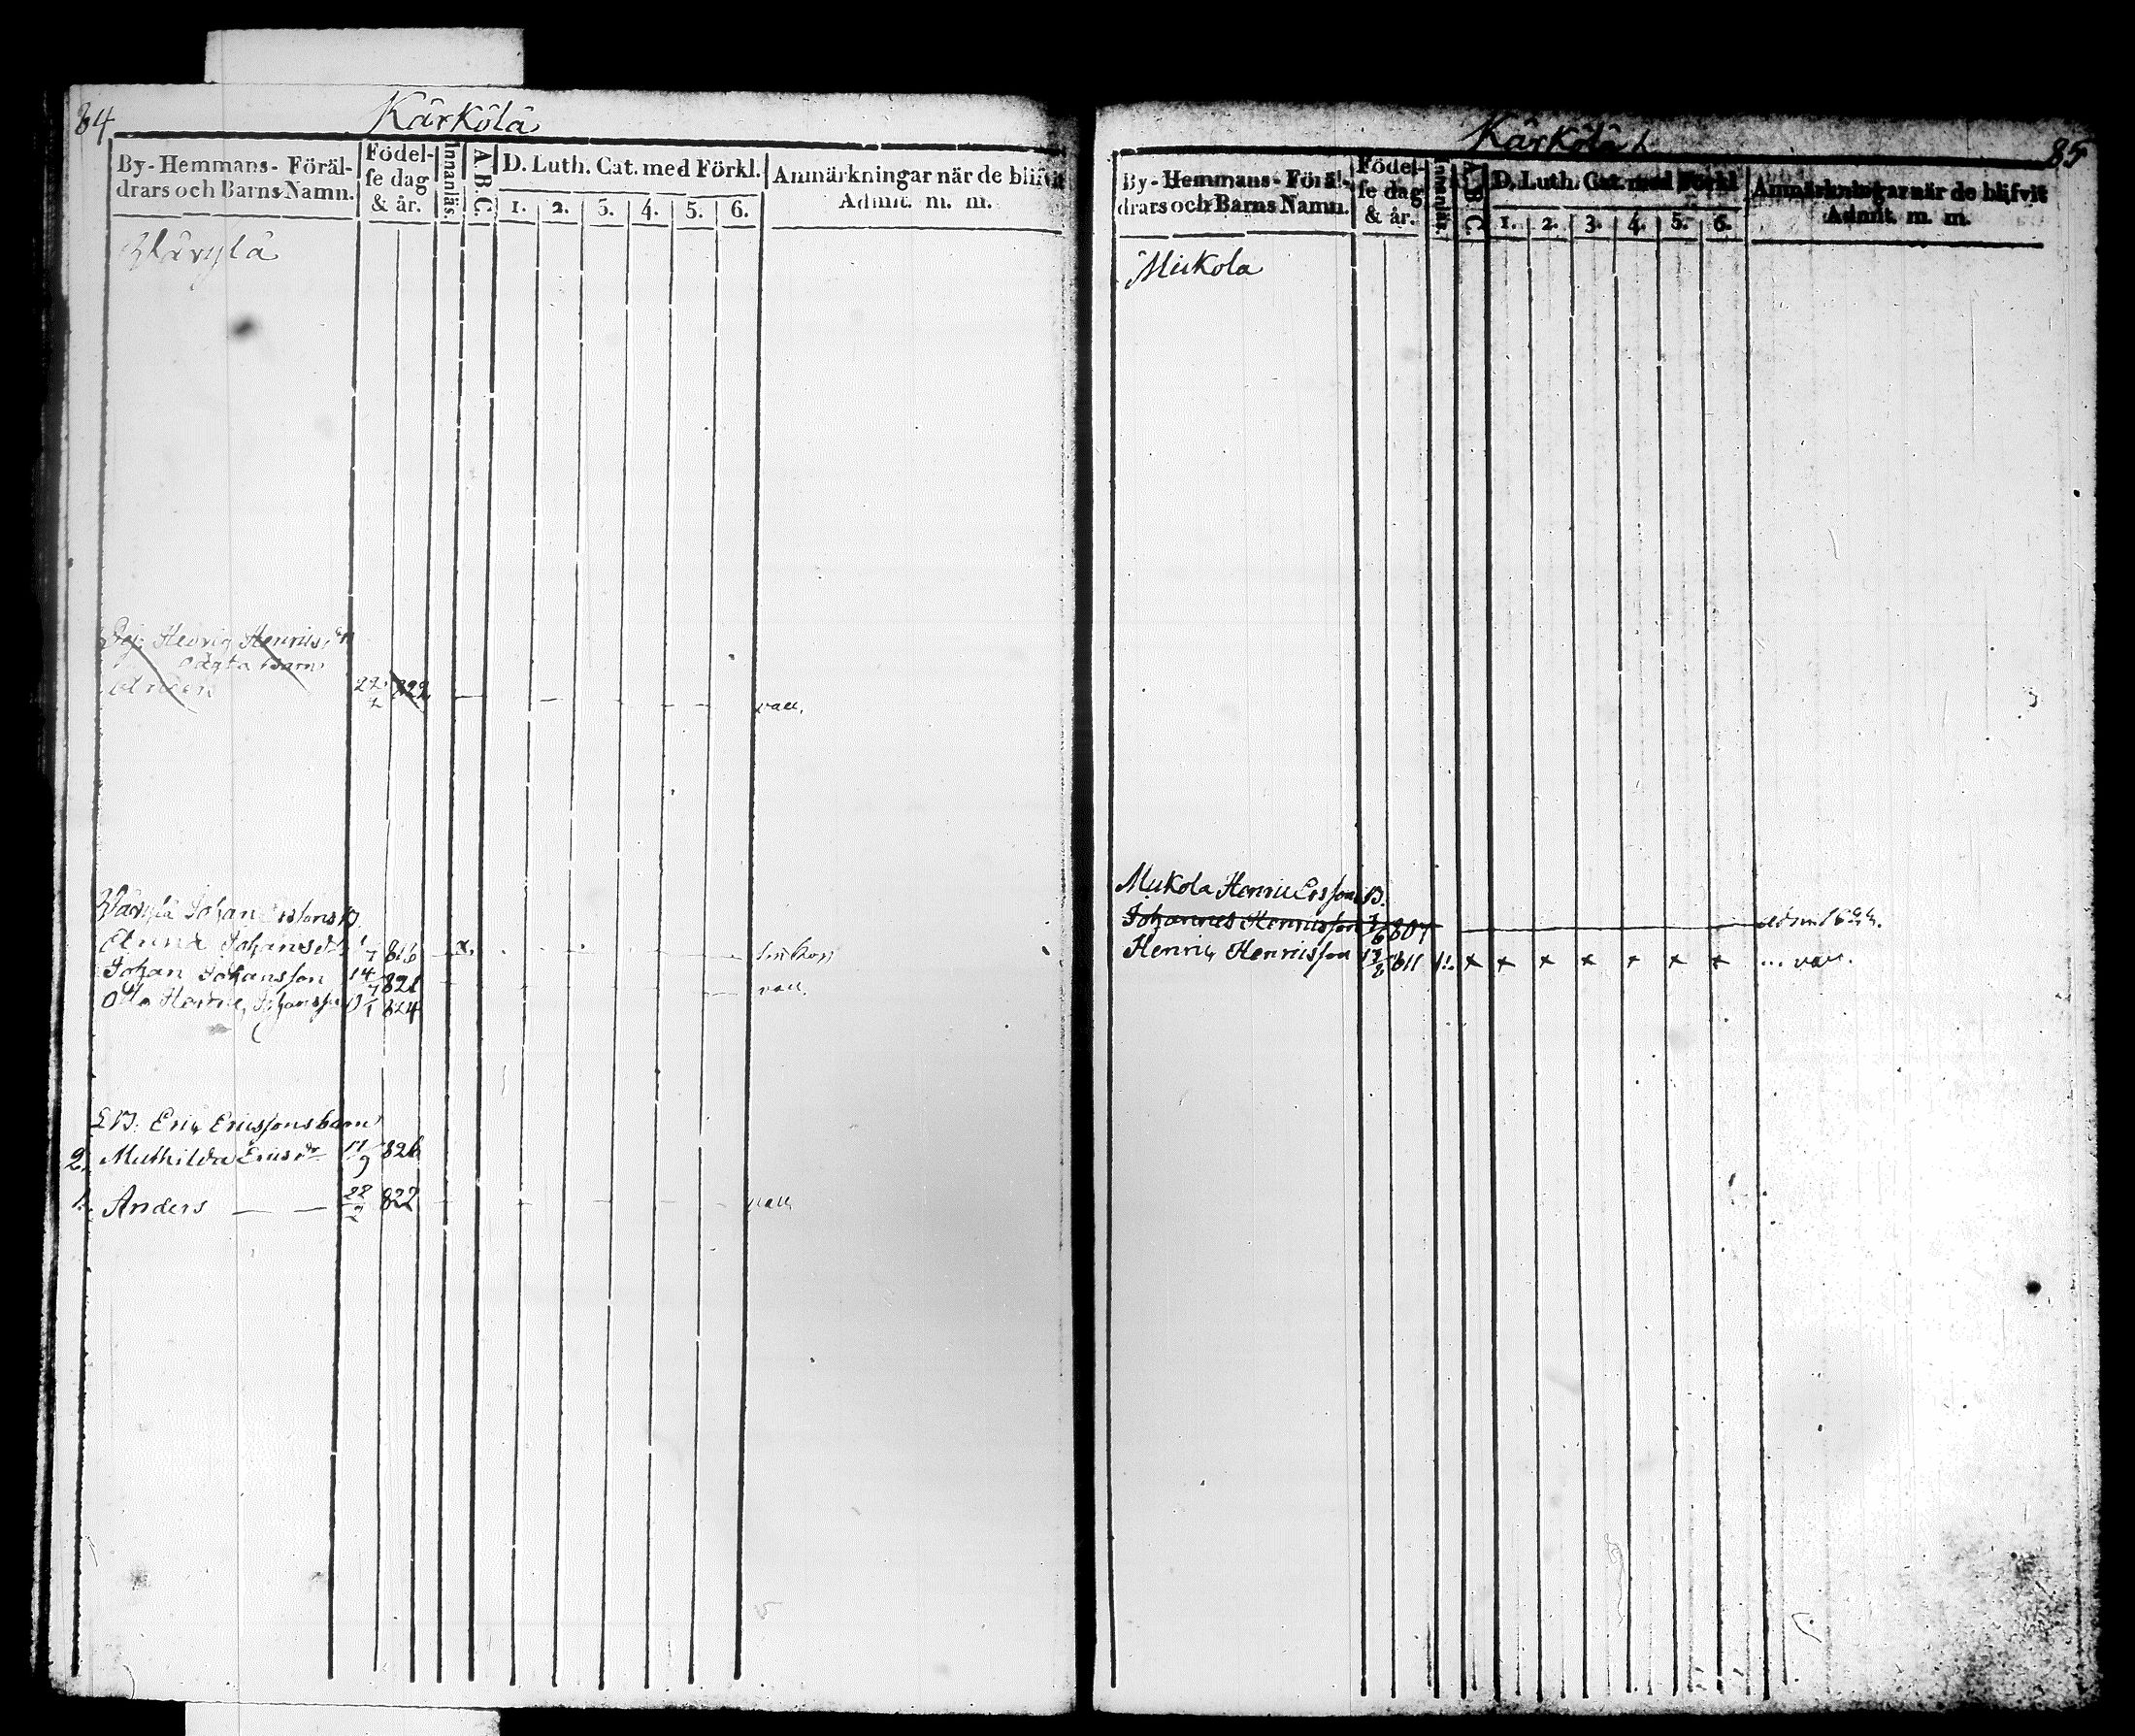 84
Kärkölä
By-Hemmans-Föräl-
drars och Barns Namn.
Födel-
se dag
& år.
Innanläs.
A.B.C.
D. Luth. Cat. med Förkl.
1. 2. 3. 4. 5. 6.
Anmärkningar när de blifvit
Admit. m. m.
Wäryla
Hedvig Henricsdr
oägta barn
22/2 822 vacc.
Wäryla Johan Erssons B.
Anna Johansdr 816 x.
Johan Johansson 14/7 821 vacc.
Otto Henric Johansson 824
Eric Ericssons barn
2. Mathilda Ericsdr 17/9 826
1. Anders — — 22/2 822 vacc.
Kärkölä
85
By-Hemmans-Föräl-
drars och Barns Namn.
Födel-
se dag
& år.
Innanläs.
A.B.C.
D. Luth. Cat. med Förkl.
1. 2. 3. 4. 5. 6.
Anmärkningar när de blifvit
Admit. m. m.
Mickola
Mickola Henric Ersson B.
Johannes Henricsson 7/6 807
Henric Henricsson 811 x x x x x x x vacc.